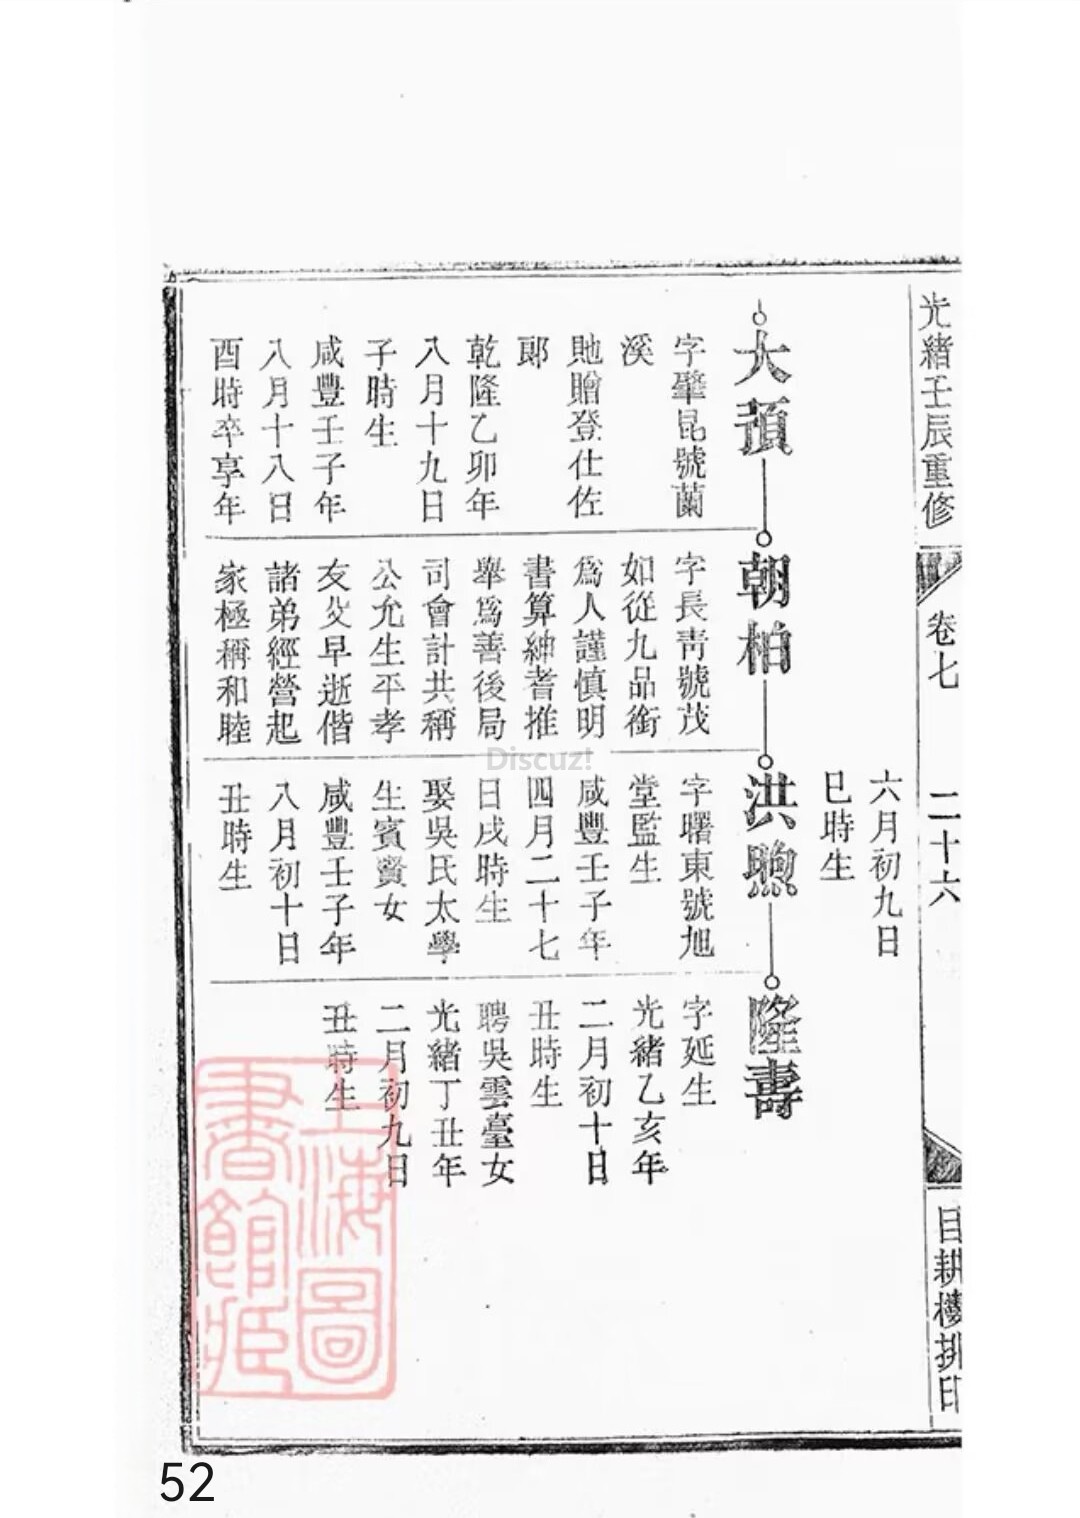 光緒壬辰重修
卷七
二十六
目耕樓排印
六月初九日
巳時生
大頊
字肇昆號蘭
溪
貤贈登仕佐
郎
乾隆乙卯年
八月十九日
子時生
咸豐壬子年
八月十八日
酉時卒享年
朝柏
字長靑號茂
如從九品銜
爲人謹慎明
書算紳耆推
舉爲善後局
司會計共稱
公允生平孝
友父早逝偕
諸弟經營起
家極稱和睦
洪煦
字曙東號旭
堂監生
咸豐壬子年
四月二十七
日戌時生
娶吳氏太學
生賓賢女
咸豐壬子年
八月初十日
丑時生
隆壽
字延生
光緒乙亥年
二月初十日
丑時生
聘吳雲臺女
光緒丁丑年
二月初九日
丑時生
上海圖
書館藏
Discuz!
52